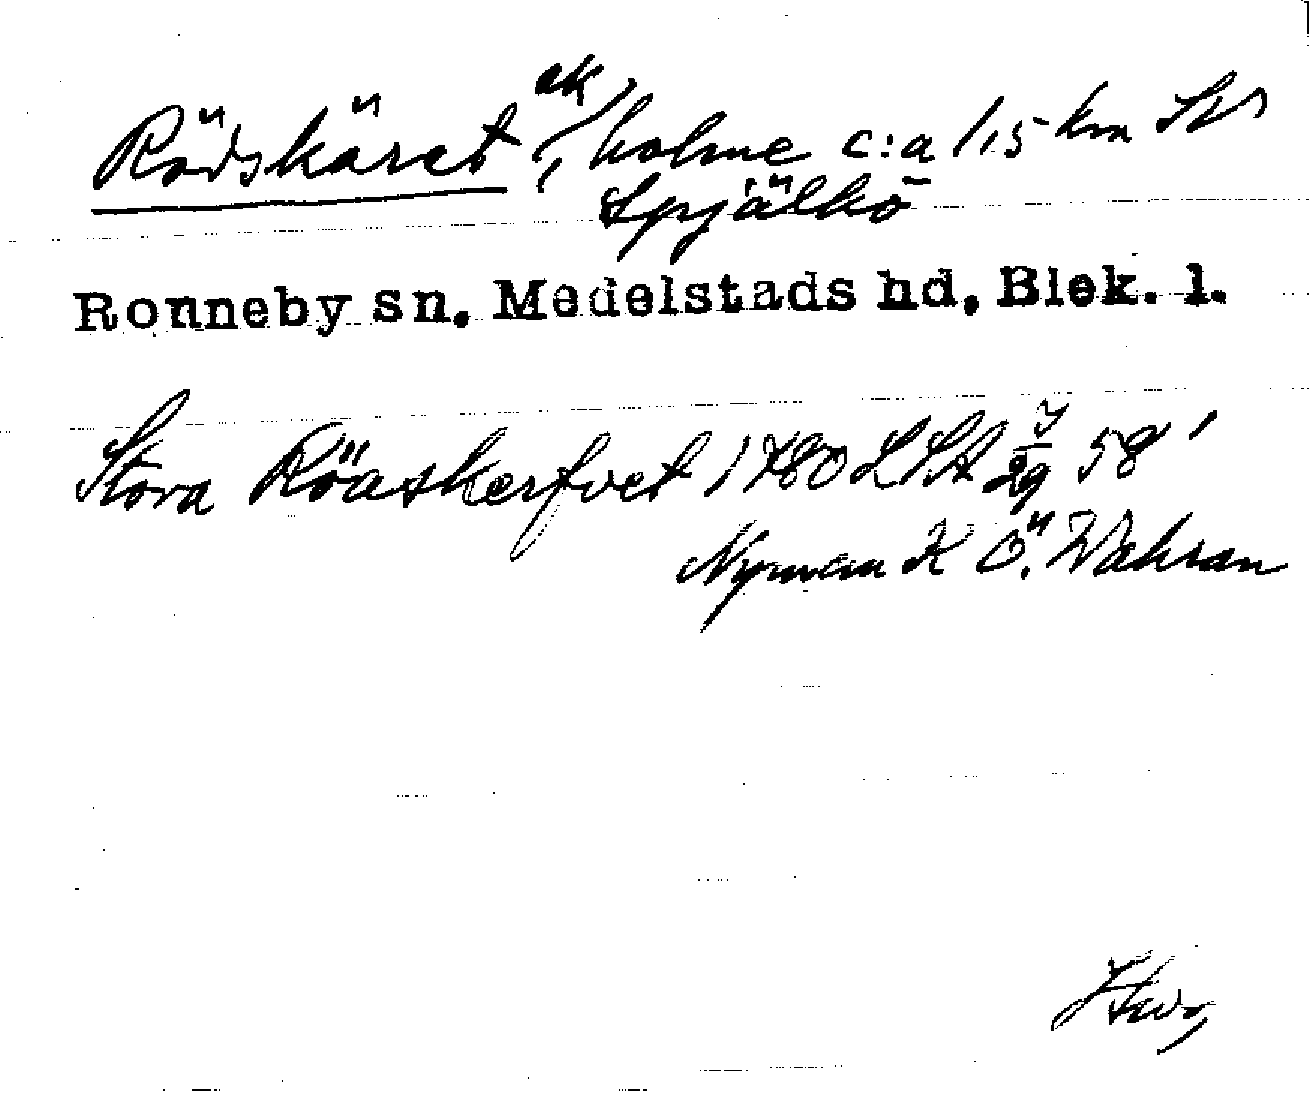 Rödskäret ek/, holme c:a 1,5 km SV
Spjälkö
Ronneby sn. Medelstads hd. Blek. l.
Stora Röaskerfvet 1780 LSA J/29 58'
Nyman K Ö. Wahran